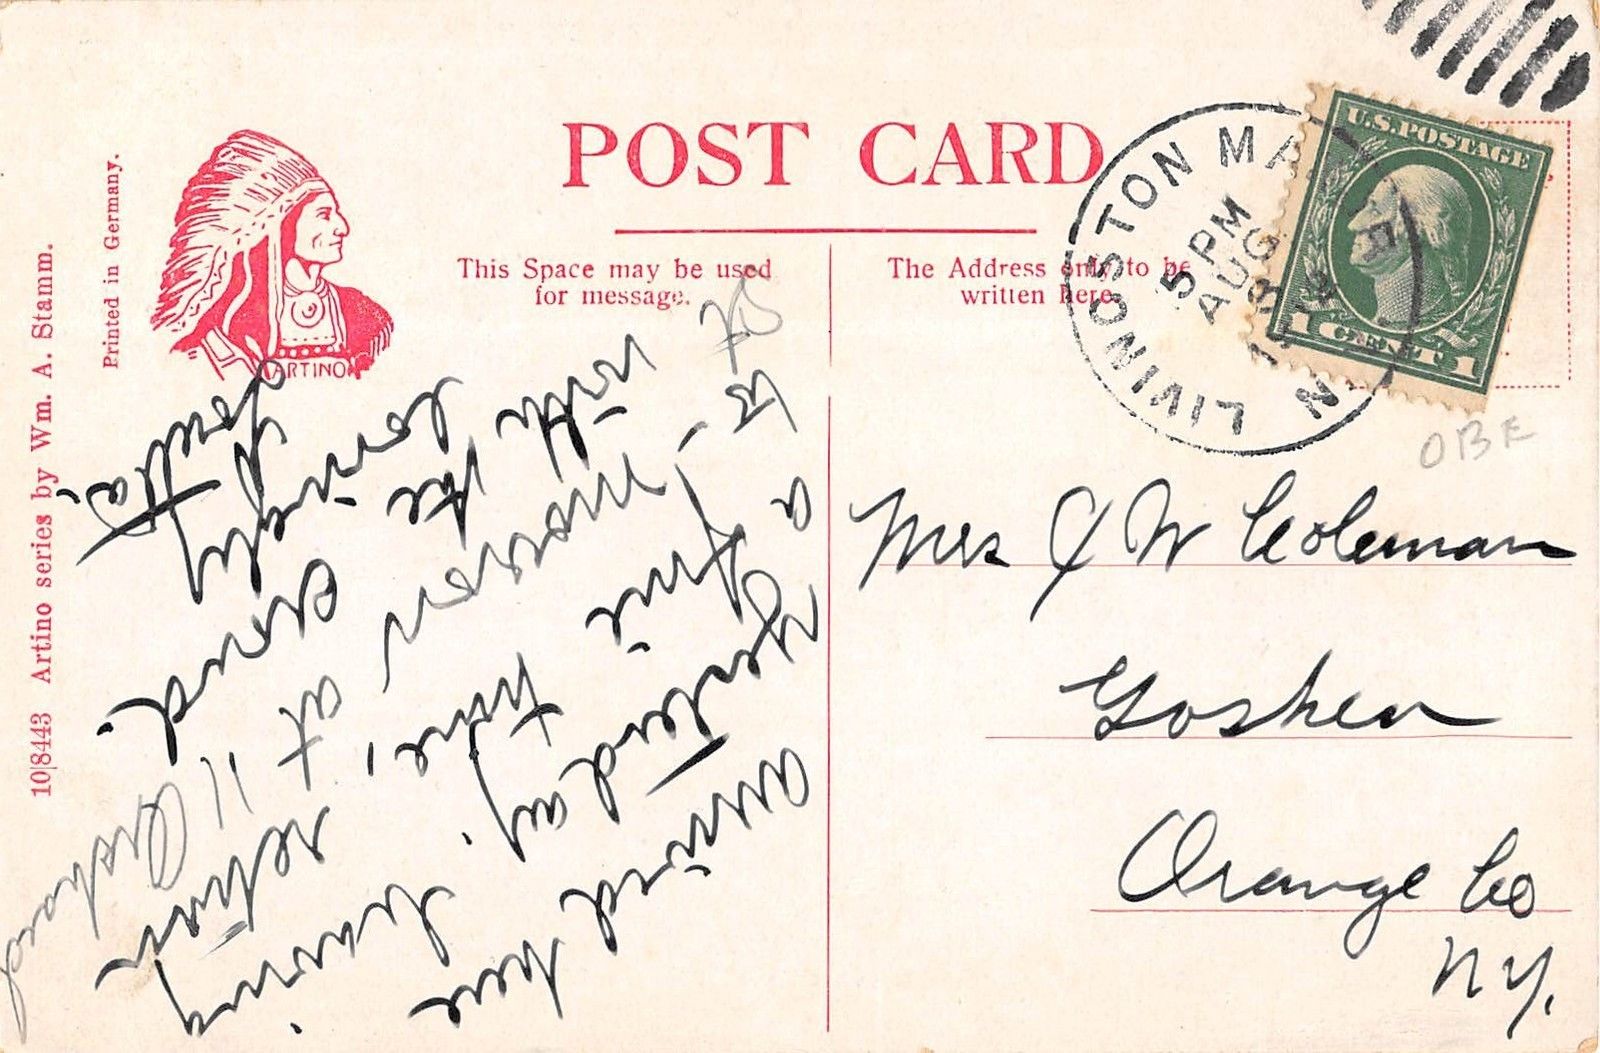 POST CARD
This Space may be used
for message.
The Address only to be
written here
Printed in Germany.
10|8443 Artino series by Wm. A. Stamm.
ARTINO
U.S. POSTAGE
1 CENT 1
LIVINGSTON MANOR
5 PM
AUG
OBE
Mrs J W Coleman
Goshen
Orange Co
N.Y.
arrived here
yesterday. having
a fine time,
return
at 11 Orchard
with the
lovingly